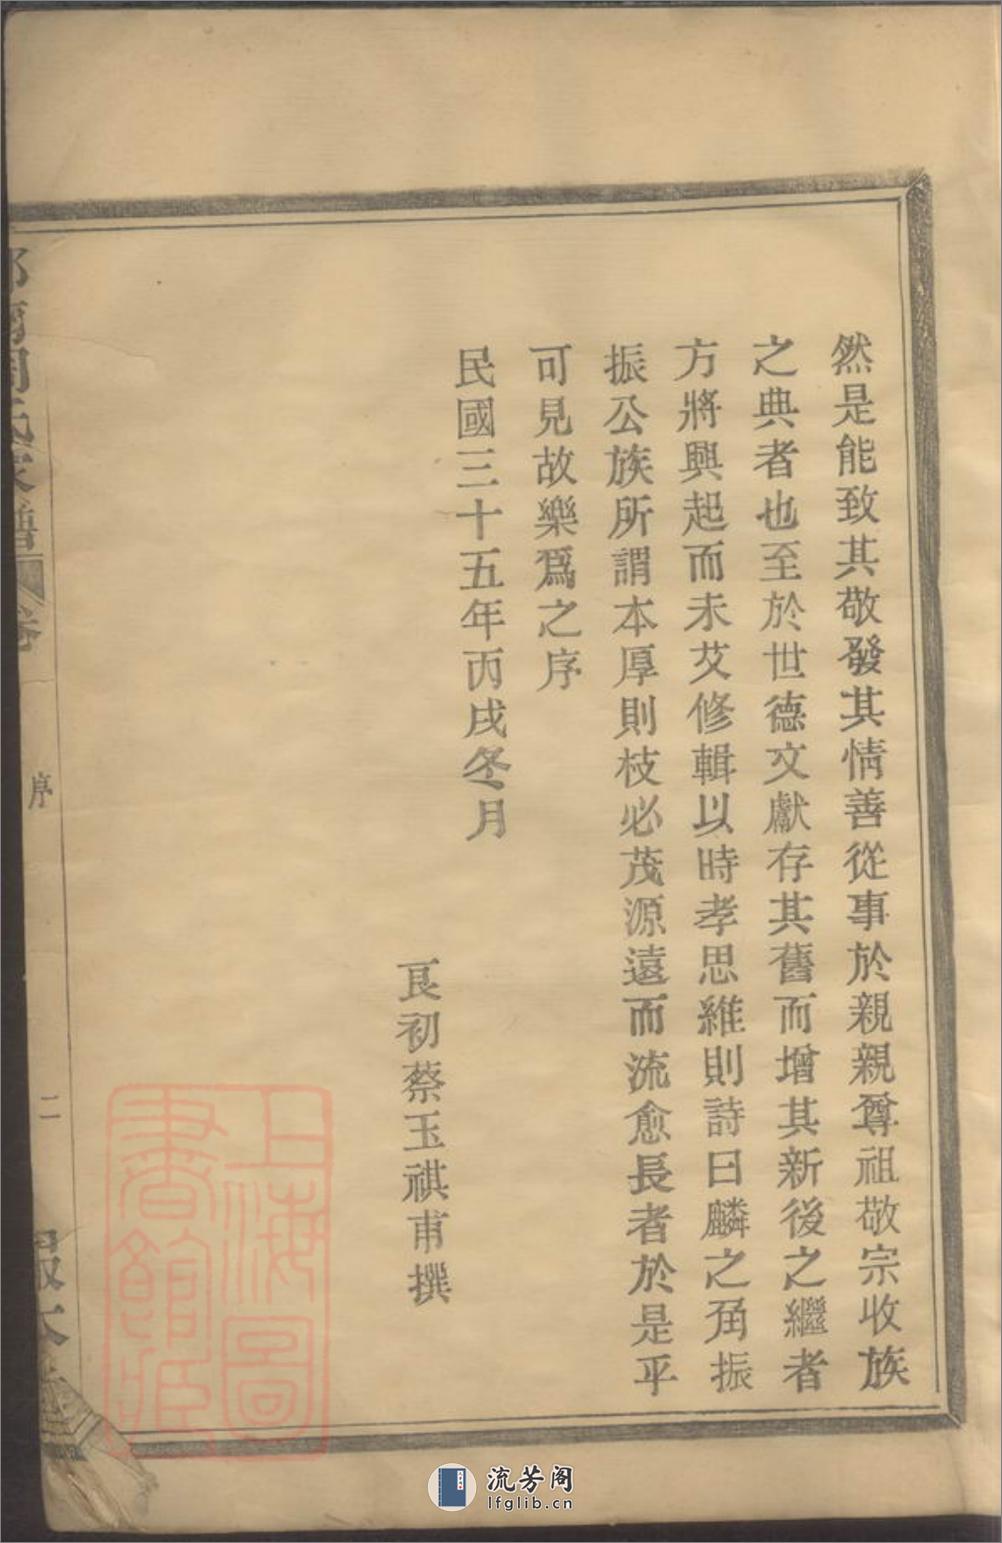 然是能致其敬發其情善從事於親親尊祖敬宗收族
之典者也至於世德文獻存其舊而增其新後之繼者
方將興起而未艾修輯以時孝思維則詩曰麟之角振
振公族所謂本厚則枝必茂源遠而流愈長者於是乎
可見故樂爲之序
民國三十五年丙戌冬月
艮初蔡玉祺甫撰
氏家譜
卷
序
二
上海圖書館藏
流芳阁
lfglib.cn